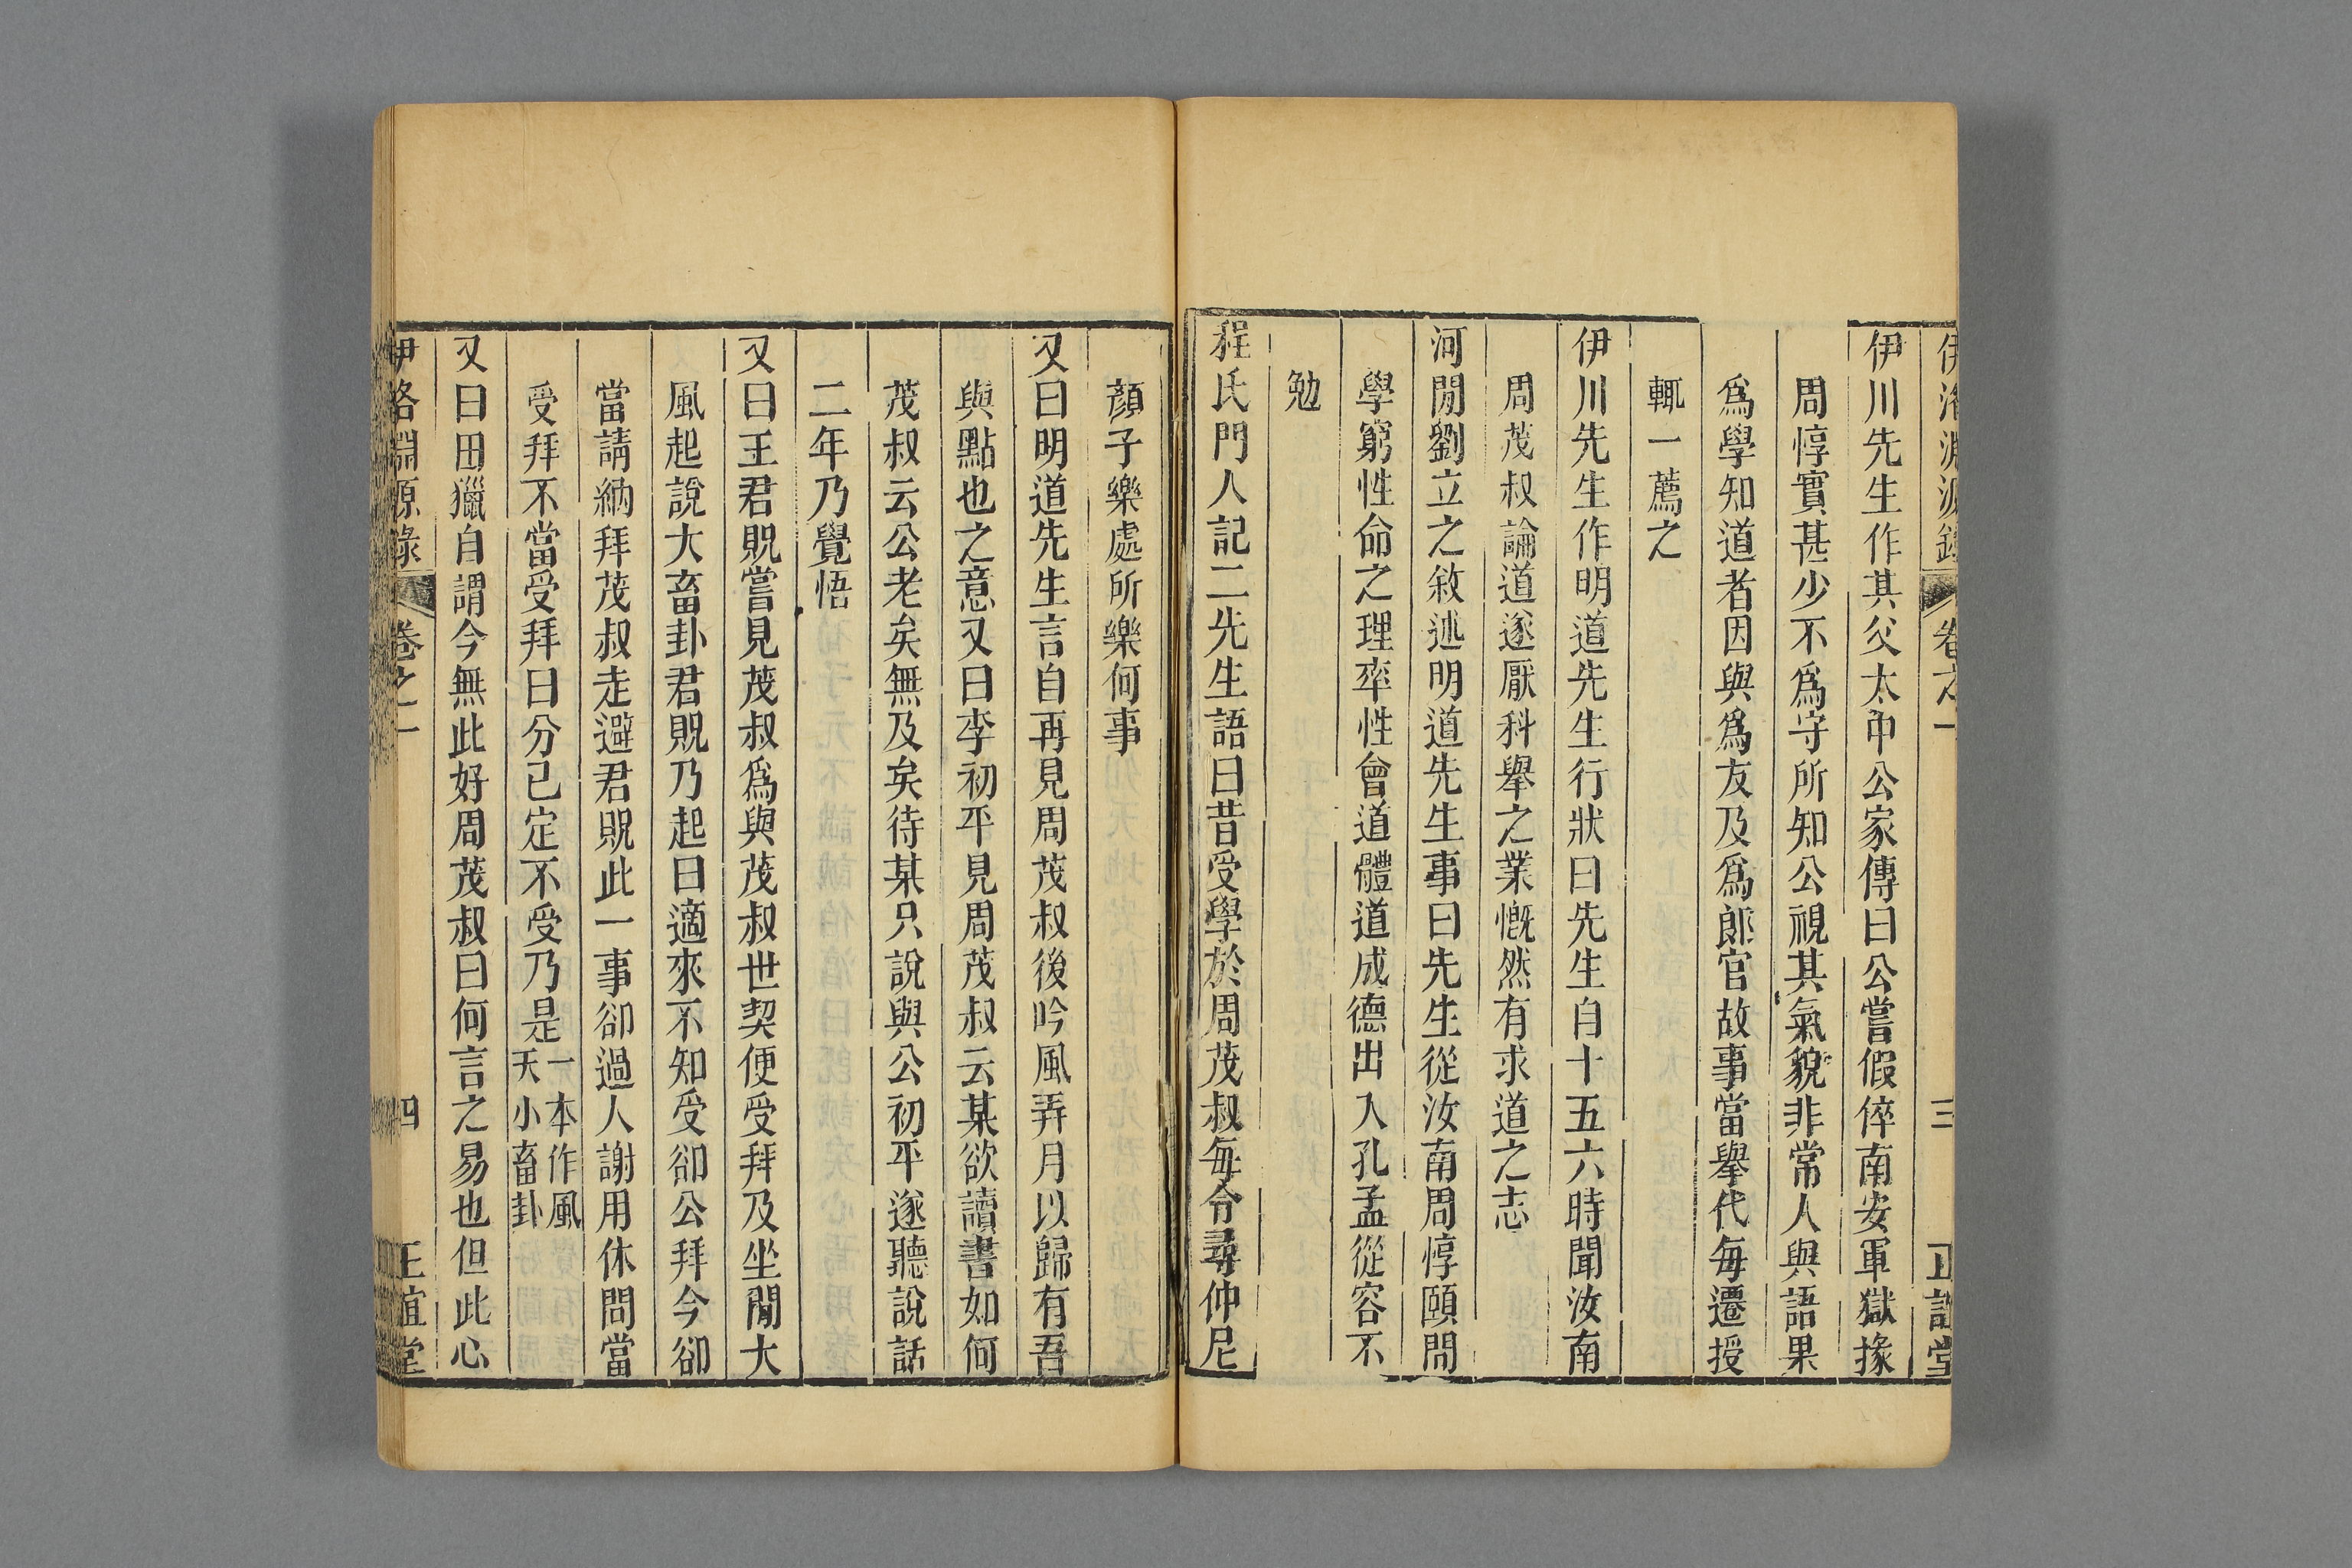 伊洛淵源錄 卷之一 三 正誼堂
伊川先生作其父太中公家傳曰公嘗假倅南安軍獄掾
周惇實甚少不爲守所知公視其氣貌非常人與語果
爲學知道者因與爲友及爲郎官故事當舉代每遷授
輒一薦之
伊川先生作明道先生行狀曰先生自十五六時聞汝南
周茂叔論道遂厭科舉之業慨然有求道之志
河閒劉立之敘述明道先生事曰先生從汝南周惇頤問
學窮性命之理率性會道體道成德出入孔孟從容不
勉
程氏門人記二先生語曰昔受學於周茂叔每令尋仲尼
顏子樂處所樂何事
又曰明道先生言自再見周茂叔後吟風弄月以歸有吾
與點也之意又曰李初平見周茂叔云某欲讀書如何
茂叔云公老矣無及矣待某只說與公初平遂聽說話
二年乃覺悟
又曰王君貺嘗見茂叔爲與茂叔世契便受拜及坐閒大
風起說大畜卦君貺乃起曰適來不知受卻公拜今卻
當請納拜茂叔走避君貺此一事卻過人謝用休問當
受拜不當受拜曰分已定不受乃是一本作風天小畜卦
又曰田獵自謂今無此好周茂叔曰何言之易也但此心
伊洛淵源錄 卷之一 四 正誼堂